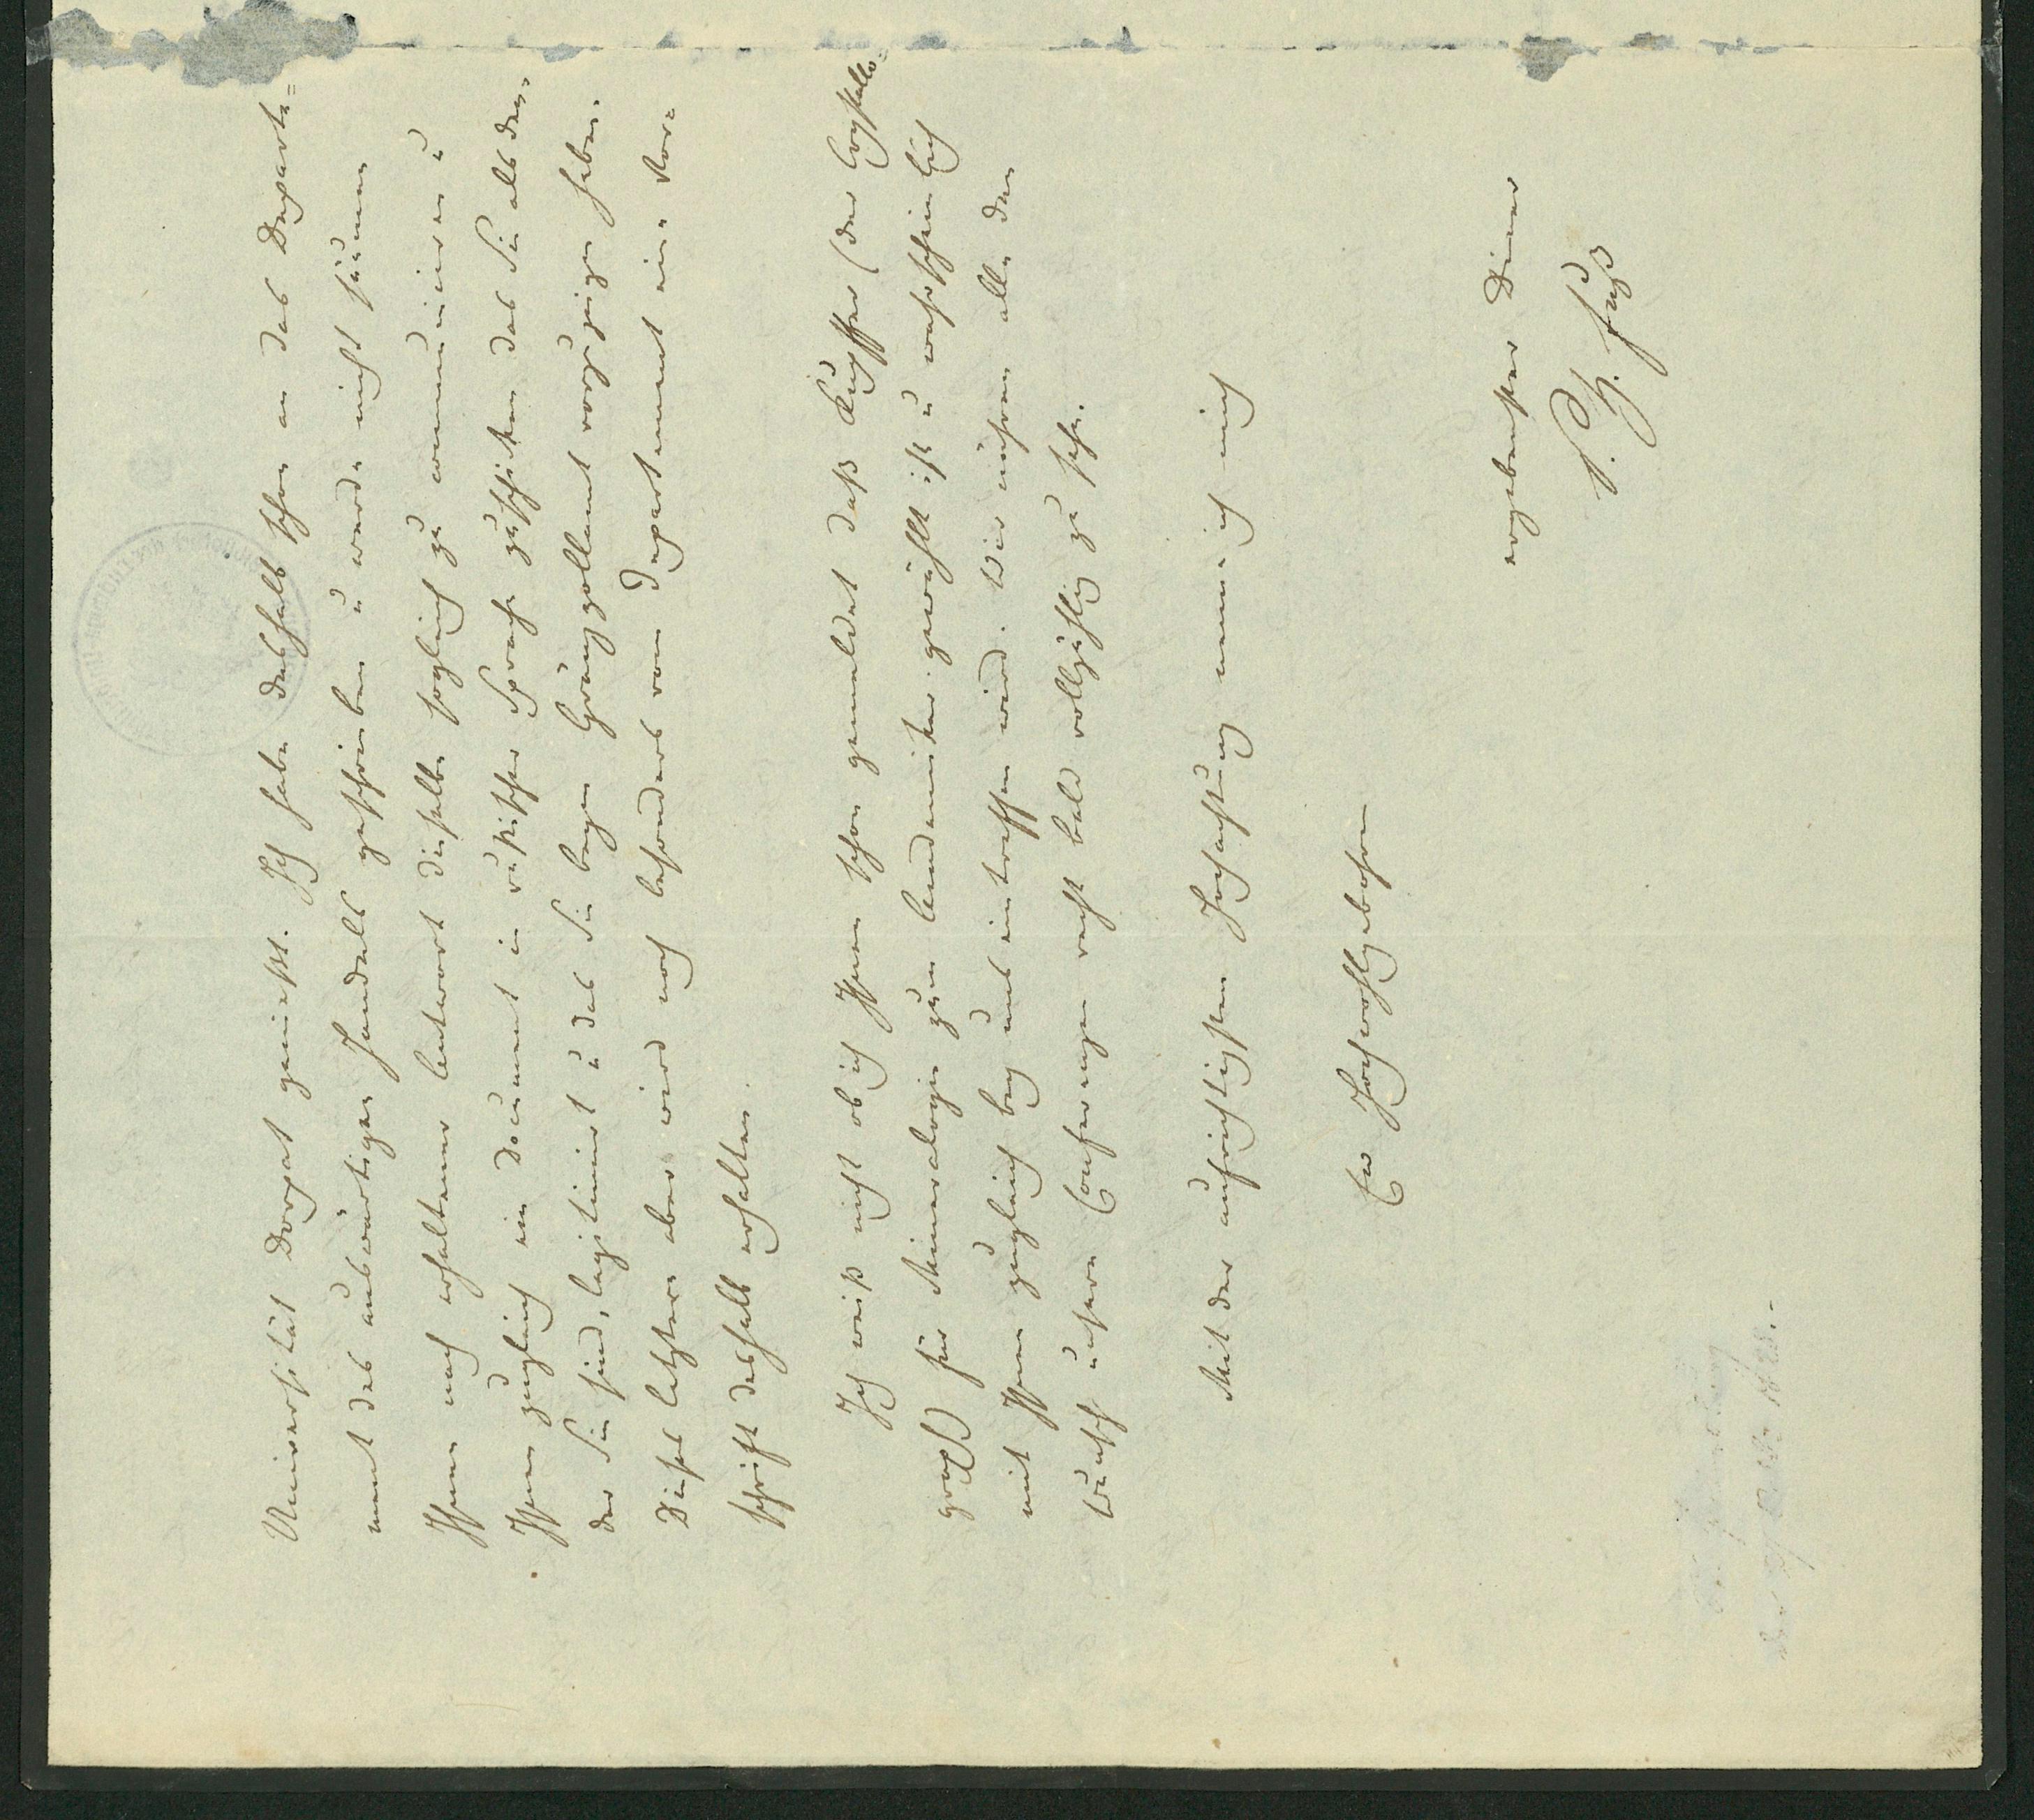 Universität Dorpat genießt. Ich habe deshalb schon an das Departe=
ment des auswärtigen Handels geschrieben u werde nicht säumen
Ihnen nach erhaltener Antwort dieselbe sogleich zu communiciren u
Ihnen zugleich ein Document in russischer Sprache zuschicken das Sie als den,
der Sie sind, legitimirt u das Sie beym Gränzzollamt vorzuzeigen haben.
Dieses letztere aber wird noch besonders vom Departement eine Vor=
schrift deshalb erhalten.
Ich weiß nicht ob ich Ihnen schon gemeldet daß Kupffer (der Crystallo=
graph) für Mineralogie zum Academiker gewählt ist u wahrscheinlich
mit Ihnen zugleich bey uns eintreffen wird. Wir nähren alle den
Wunsch unsere Conferenzen recht bald vollzählig zu sehn.
Mit der aufrichtigsten Hochachtung nenne ich mich
Ew Hochwohlgebohren
ergebenster Diener
P. H. Fuß